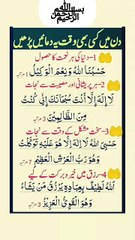 بسم الله الرحمن الرحيم
دن میں کسی بھی وقت یہ دعائیں پڑھیں
1- دنیا کی ہر نعمت کا حصول
حَسْبُنَا اللهُ وَنِعْمَ الْوَكِيْلُ
2- ہر پریشانی اور مصیبت سے نجات
لَا إِلَهَ إِلَّا أَنْتَ سُبْحَانَكَ إِنِّي كُنْتُ
مِنَ الظَّالِمِيْنَ
3- سخت مشکل کے وقت کی دعا
لَا إِلَهَ إِلَّا هُوَ عَلَيْهِ تَوَكَّلْتُ
وَهُوَ رَبُّ الْعَرْشِ الْعَظِيْمِ
4- رزق میں خیر و برکت کے لیے
اَللهُ لَطِيْفٌ بِعِبَادِهِ يَرْزُقُ مَنْ يَّشَاءُ
وَهُوَ الْقَوِيُّ الْعَزِيْزُ